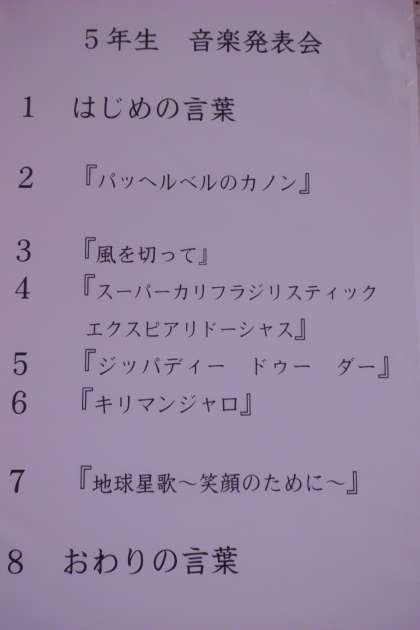 5年生　音楽発表会
1　はじめの言葉
2　『パッヘルベルのカノン』
3　『風を切って』
4　『スーパーカリフラジリスティック
エクスピアリドーシャス』
5　『ジッパディー　ドゥー　ダー』
6　『キリマンジャロ』
7　『地球星歌～笑顔のために～』
8　おわりの言葉